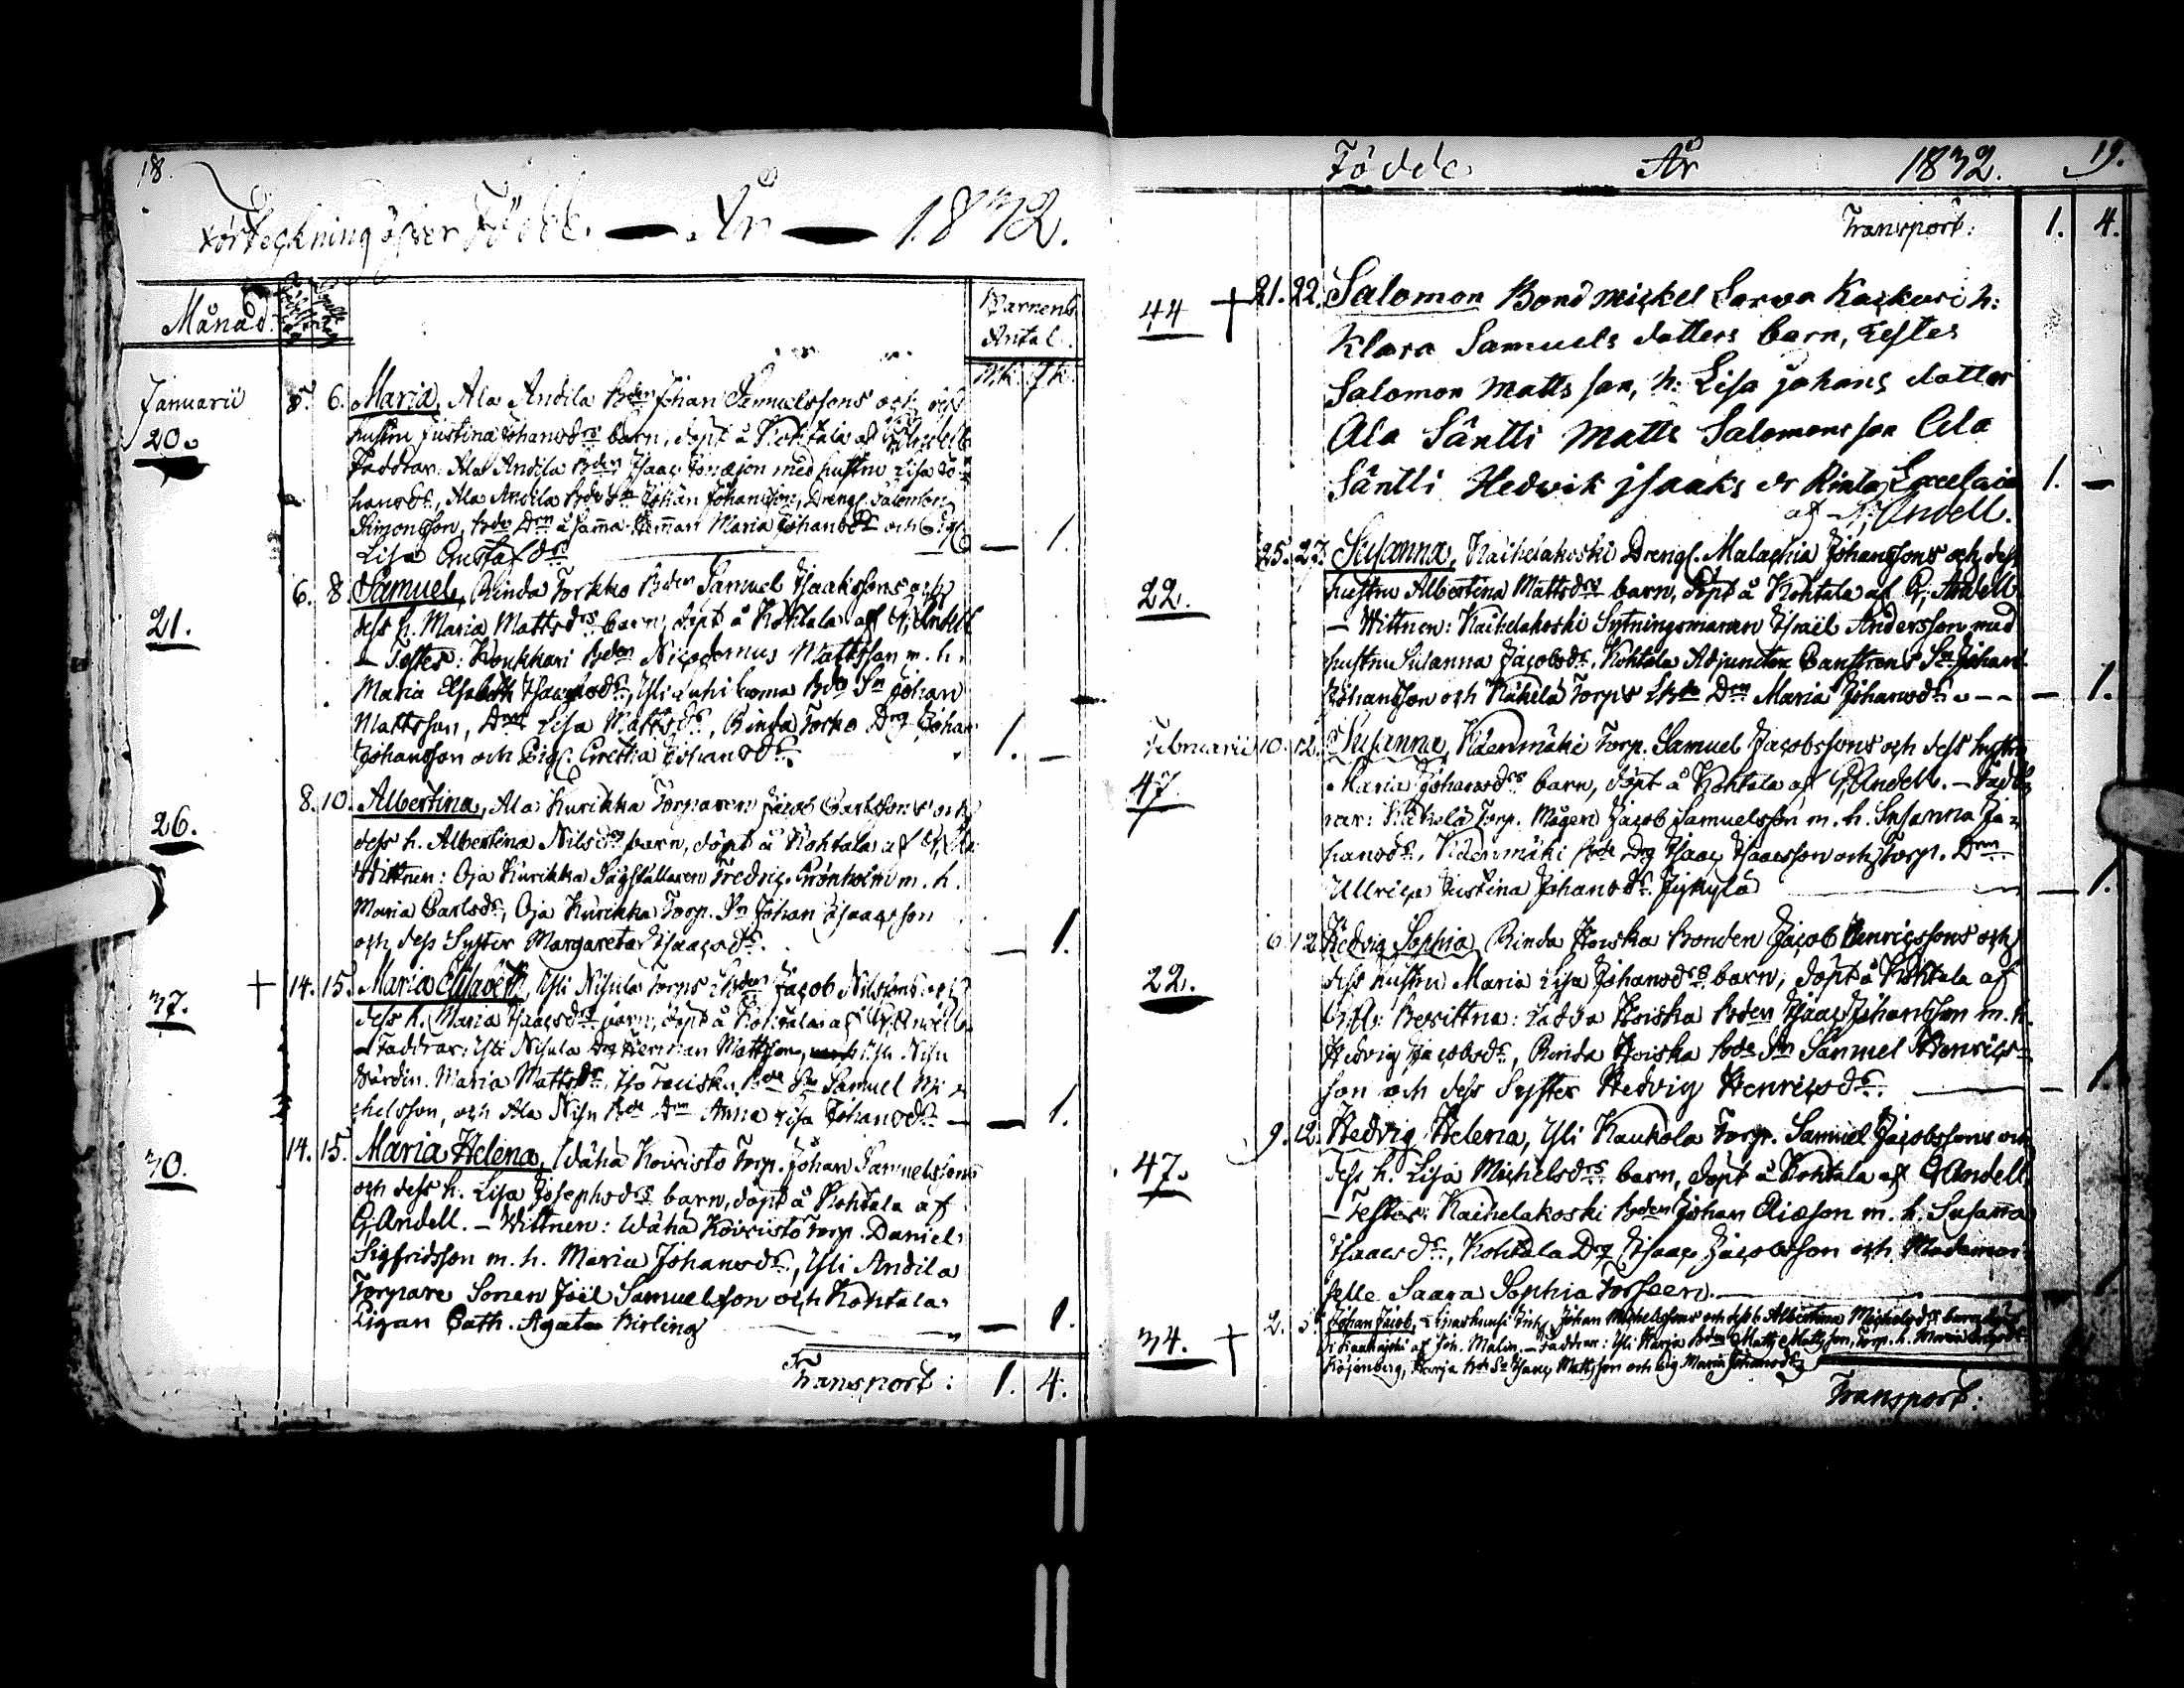 18.
Förteckning öfver Födde. — År — 1832.
Månad.
Barnens
Antal.
Mk. Qk.
Januarii 5. 6. Maria, Ala Andila Bden Johan Samuelssons och
20. hustru Justina Johansdrs barn, döpt å Kohtala af G. Andell
Faddrar: Ala Andila Bden Isaac med hustru Lisa Jo-
hansdr, Ala Andila Bde Sn Johan Johansson, Dreng. Salomon
Simonsson, Bde Drn å samma Hemman Maria Johansdr och Pig.
Lisa Gustafdr. — 1.
21. 6. 8. Samuel, Rinda Torkko Bden Samuel Isaakssons och
dess h. Maria Mattsdrs barn, döpt å Kohtala af G. Andell
— Testes: Koukkari Bden Nicodemus Mattsson m. h.
Maria Elsabeth Isaacsdr, Yli Bde Sn Johan
Mattsson, Drn Lisa Mattsdr, Rinda Torko Drg Johan
Johansson och Pig. Gretha Johansdr. 1. —
26. 8. 10. Albertina, Ala Kurikka Torparen Jacob Carlssons och
dess h. Albertina Nilsdrs barn, döpt å Kohtala af G. An
Wittnen: Oja Kurikka Fredric Grönholm m. h.
Maria Carlsdr, Oja Kurikka Torp. Sn Johan Isaacsson
och dess Syster Margareta Isaacsdr. — 1.
37. + 14. 15. Maria Elisabeth, Yli Nisula Torps Jacob Nilssons och
dess h. Maria Isaacsdrs barn, döpt å Kohtala af G. Andell
— Faddrar: Yli Nisula Drg Herman Mattsson, Yli Nisu
Värdin. Maria Mattsdr, Bde Sn Samuel Mi-
chelsson, och Ala Nisu Bde Drn Anna Lisa Johansdr — — 1.
30. 14. 15. Maria Helena, Wähä Koivisto Torp. Johan Samuelssons
och dess h. Lisa Josephsdrs barn, döpt å Kohtala af
G. Andell. — Wittnen: Wähä Koivisto Torp. Daniel
Sigfridsson m. h. Maria Johansdr, Yli Andila
Torpare Sonen Joël Samuelsson och Kohtala
Pigan Cath. Agata Birling — 1.
Transport: 1. 4.
Födde År 1832. 19.
Transport: 1. 4.
44 + 21. 22. Salomon Bond Mickel Sarva Kackuri h:
Klara Samuels dotters barn, Testes
Salomon Matts son, h: Lisa Johans dotter
Ala Säntti Matts Salomons son Ala
Säntti Hedvik Jsaaks dr Rinta
af G. Andell. 1. —
22. 25. 27. Susanna, Kaihelakoski Dreng. Malachia Johanssons och dess
hustru Albertina Mattsdrs barn, döpt å Kohtala af G. Andell
— Wittnen: Kaihelakoski Sytningsmannen Israël Andersson med
hustru Susanna Jacobsdr, Kohtala Adjuncten Sn Johan
Johansson och Torps Drn Maria Johansdr — 1.
Februarii 10. 12. Susanna, Kidenmäki Torp. Samuel Jacobssons och dess hustru
47. Maria Johansdrs barn, döpt å Kohtala af G. Andell. — Fad-
rar: Torp. Mågen Jacob Samuelsson m. h. Susanna Jo-
hansdr, Kidenmäki Bde Drg Isaac Isaacsson och Torp. Drn
Ullrica Justina Johansdr — 1.
22. 6. 12. Hedvig Sophia, Rinda Hoiska Bonden Jacob Henricssons och
dess hustru Maria Lisa Johansdrs barn, döpt å Kohtala af
G. A: Bevittna: Hoiska Bden Isaac Johansson m. h.
Hedvig Jacobsdr, Rinda Hoiska Bde Sn Samuel Henrics-
son och dess Syster Hedvig Henricsdr. — 1.
47. 9. 12. Hedvig Helena, Yli Kaukola Torp. Samuel Jacobssons och
dess h. Lisa Michelsdrs barn, döpt å Kohtala af G. Andell
— Testes: Kaihelakoski Bden Johan Eliæson m. h. Susanna
Isaacsdr, Kohtala Drg Isaac Jacobsson och Mademoi-
selle Saara Sophia Forseen. — 1.
34. + 2. 5. Johan Jacob, Johan Michelssons och dess h. Albertina Michelsdrs barn, döpt
af Joh. Malin. — Faddrar: Yli Harja Bden Matts Mattsson, Torp. h. Maria
Rosenberg, Harja Bde Sn Isaac Mattsson och Pig Maria Johansdr
Transport: